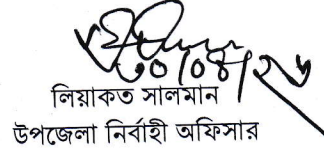 ৩০/০৪/২৬
লিয়াকত সালমান
উপজেলা নির্বাহী অফিসার